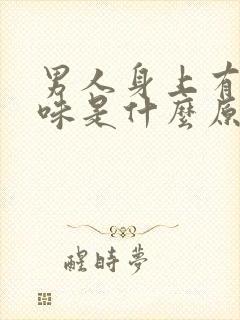 男人身上有
味是什麼原
醒時夢